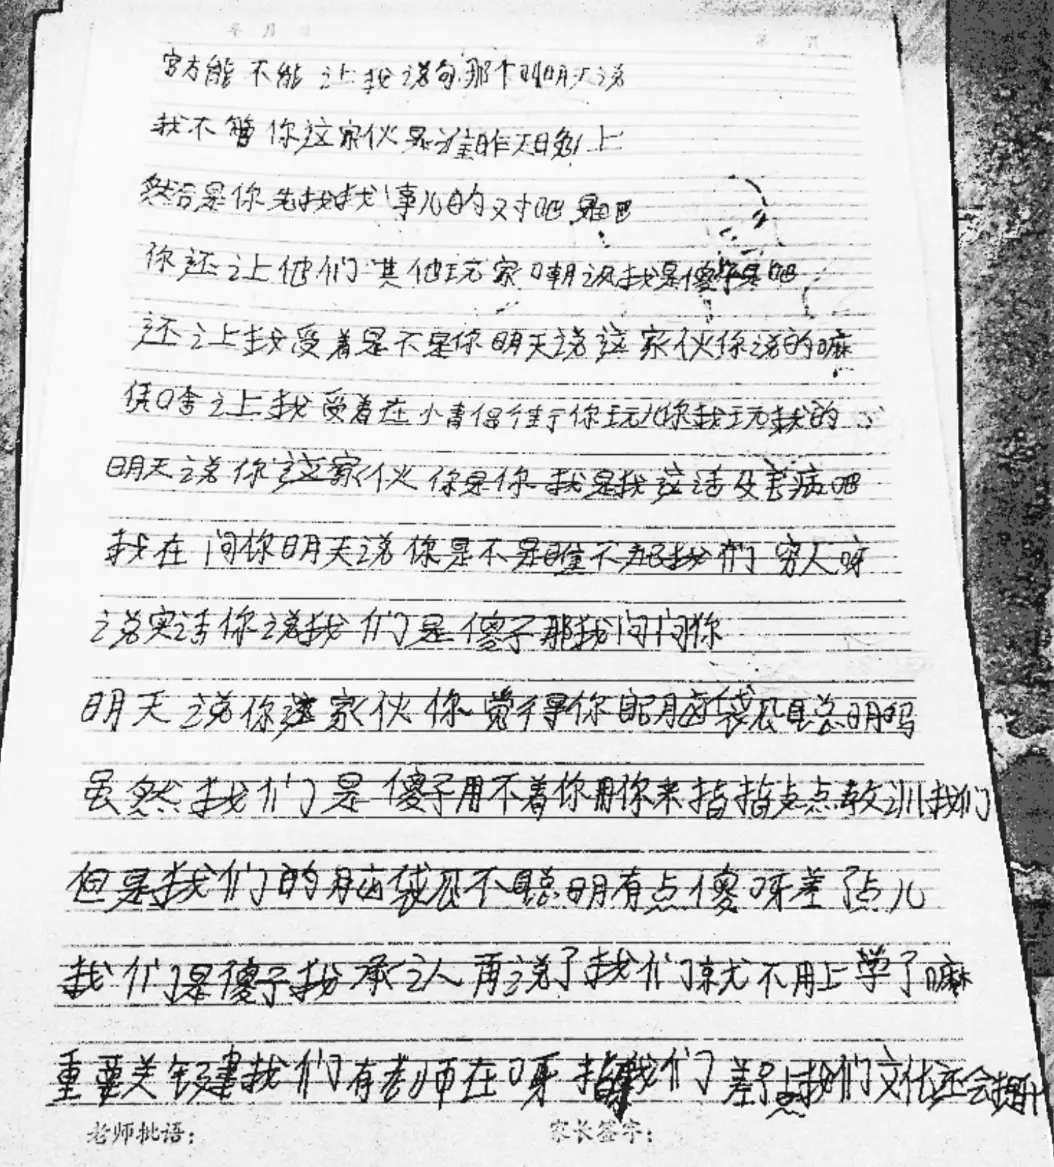 年 月 日
第 页
官方能不能让我说句那个叫明天说
我不管你这家伙是谁昨天晚上
然后是你先找我事儿的对吧是吧
你还让他们其他玩家嘲讽我是傻子是吧
还让我受着是不是你明天说这家伙你说的嘛
凭啥让我受着在小青 你玩儿你我玩我的
明天说你这家伙你是你我是我这话没毛病吧
我在问你明天说你是不是瞧不起我们穷人呀
说实话你说我们是傻子那我问问你
明天说你这家伙你觉得你的脑袋瓜聪明吗
虽然我们是傻子用不着你用你来指指点点教训我们
但是我们的脑袋瓜不聪明有点傻呀差了点儿
我们是傻子我承认再说了我们就不用上学了嘛
重要关键我们有老师在呀 我们 我们文化还会提升
老师批语： 家长签字：